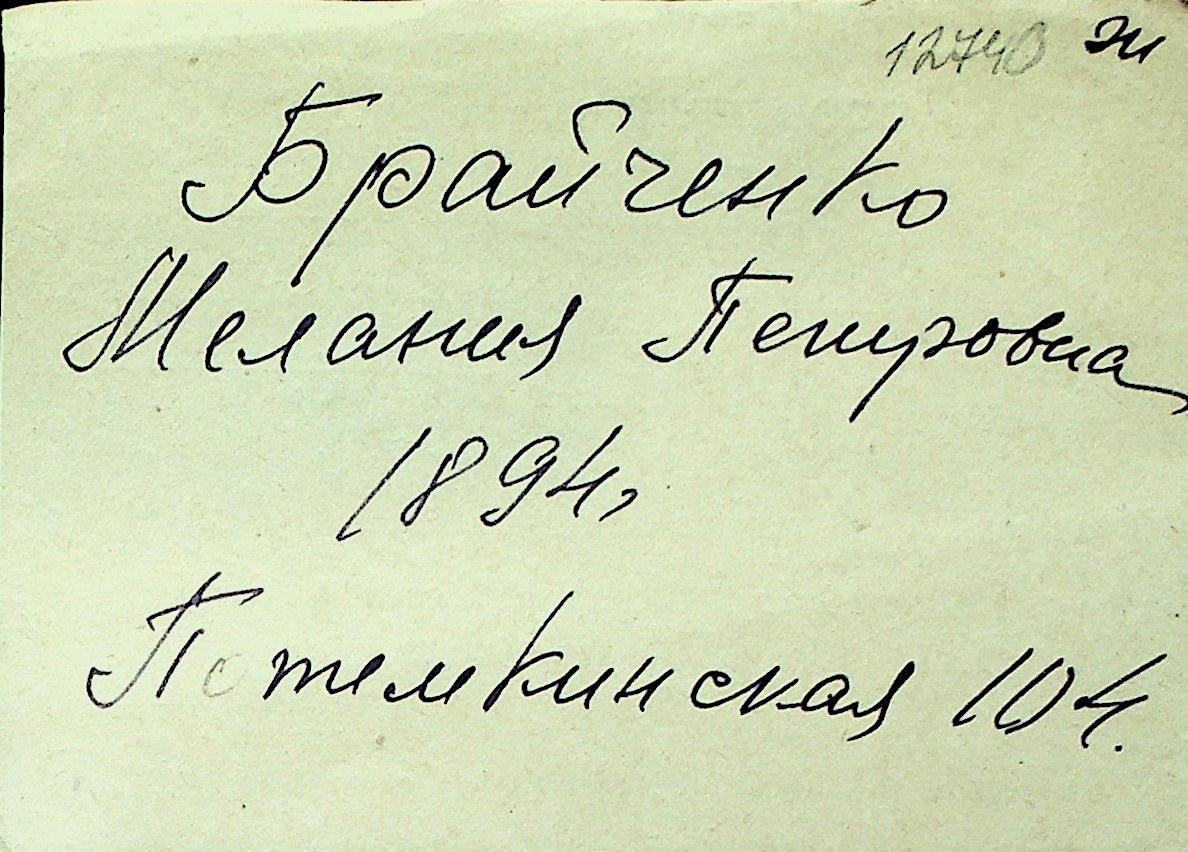 12740 ж
Брайченко
Мелания Петровна
1894,
Потемкинская 104.